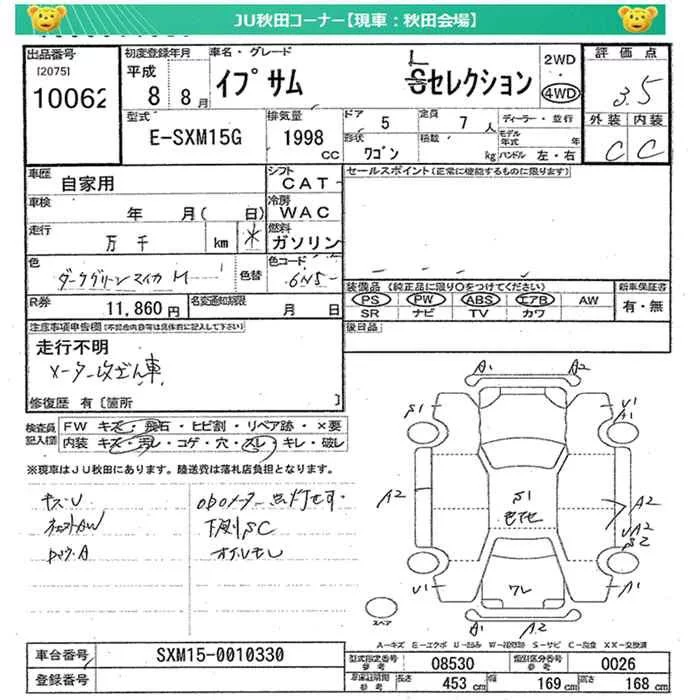 JU秋田コーナー【現車：秋田会場】
出品番号
[2075]
10062
初度登録年月
平成
8 8月
車名・グレード
イプサム
L
Sセレクション
2WD
・
4WD
評価点
3.5
外装 内装
C C
型式
E-SXM15G
排気量
1998
CC
ドア
5
定員
7 人
形状
ワゴン
積載
kg
ディーラー・並行
モデル年式
年
ハンドル 左・右
車歴
自家用
シフト
CAT-
車検
年 月( 日)
冷房
WAC
走行
万 千
km
*
燃料
ガソリン
色
ダークグリーンマイカM
色替
色コード
6N5-
R券
11,860円
名変通知期限
月 日
セールスポイント(正常に機能するものに限ります)
装備品 (純正品に限り○をつけてください)
PS PW ABS エアB AW
SR ナビ TV カワ
新車保証書
有・無
後日品
注意事項申告欄(不記合内容等は具体的に記入して下さい)
走行不明
メーター改ざん車
修復歴 有[箇所 ]
検査員記入欄
FW キズ・飛石・ヒビ割・リペア跡・×要
内装 キズ・汚レ・コゲ・穴・スレ・キレ・破レ
※現車はJU秋田にあります。陸送費は落札店負担となります。
キズ・U
oboメーター
下廻りSC
オイルモレ
A1 A2
S1 U1
A1
A2 S1
色アセ
A2
UA2
S2
U1 ワレ A1
A2
スペア
A=キズ E=エクボ
XX=交換済
車台番号
SXM15-0010330
登録番号
型式指定番号
08530
類別区分番号
0026
長さ
453 cm
幅
169 cm
高さ
168 cm